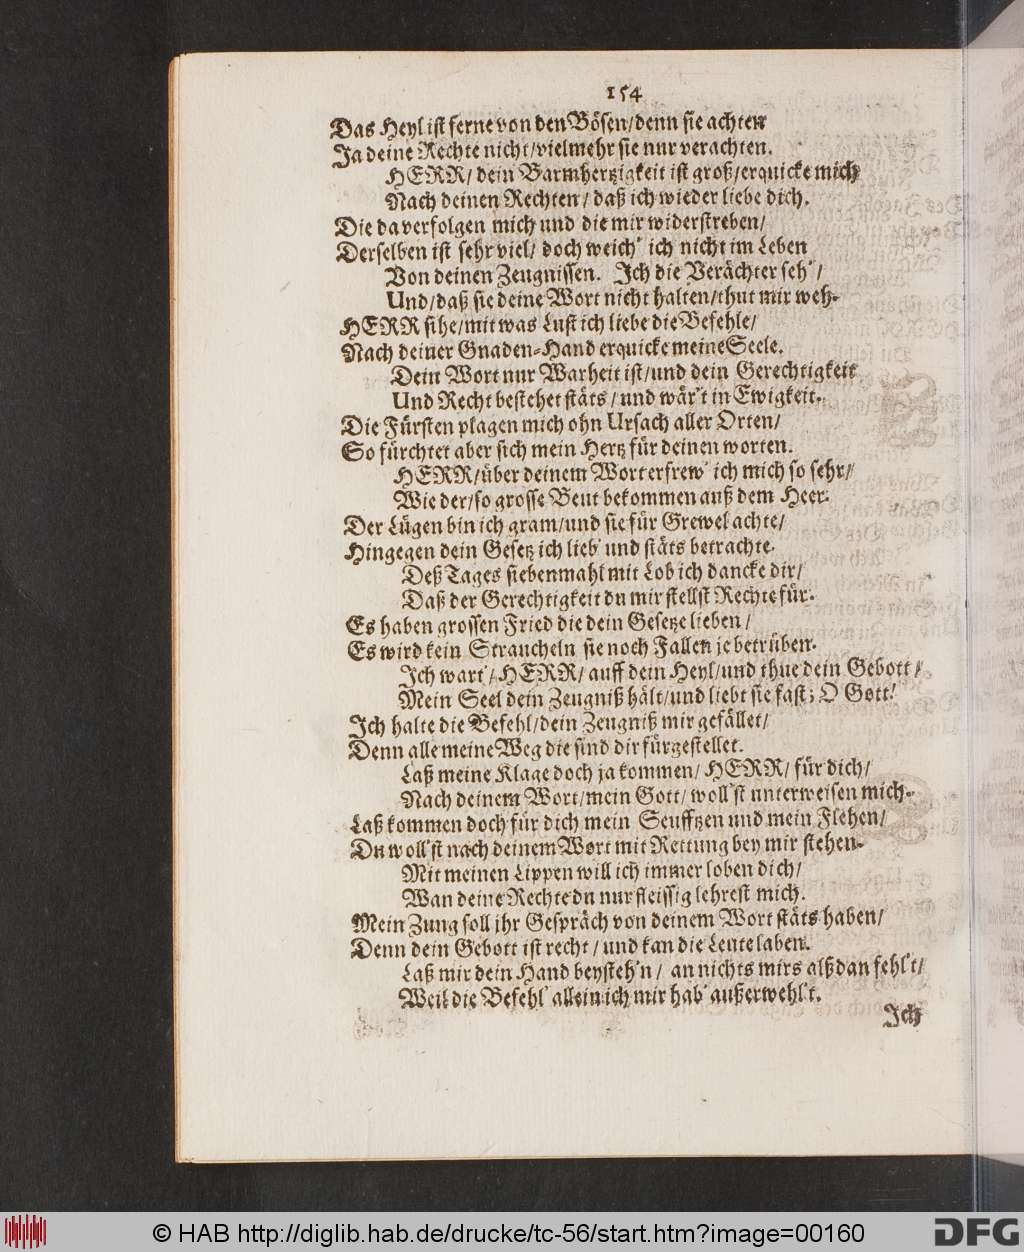 154
Das Heyl ist ferne von den Bösen/denn sie achten
Ja deine Rechte nicht/vielmehr sie nur verachten.
HERR/ dein Barmhertzigkeit ist groß/erquicke mich
Nach deinen Rechten/ daß ich wieder liebe dich.
Die da verfolgen mich und die mir widerstreben/
Derselben ist sehr viel/ doch weich' ich nicht im Leben
Von deinen Zeugnissen. Ich die Verächter seh'/
Und/daß sie deine Wort nicht halten/thut mir weh.
HERR sihe/mit was Lust ich liebe die Befehle/
Nach deiner Gnaden-Hand erquicke meine Seele.
Dein Wort nur Warheit ist/und dein Gerechtigkeit
Und Recht bestehet stäts/ und wär't in Ewigkeit.
Die Fürsten plagen mich ohn Ursach aller Orten/
So fürchtet aber sich mein Hertz für deinen worten.
HERR/über deinem Wort erfrew' ich mich so sehr/
Wie der/so grosse Beut bekommen auß dem Heer.
Der Lügen bin ich gram/und sie für Grewel achte/
Hingegen dein Gesetz ich lieb' und stäts betrachte.
Deß Tages siebenmahl mit Lob ich dancke dir/
Daß der Gerechtigkeit du mir stellst Rechte für.
Es haben grossen Fried die dein Gesetze lieben/
Es wird kein Straucheln sie noch Fallen je betrüben.
Ich wart'/HERR/ auff dein Heyl/und thue dein Gebott/
Mein Seel dein Zeugniß hält/und liebt sie fast; O Gott!
Ich halte die Befehl/dein Zeugniß mir gefället/
Denn alle meine Weg die sind dir fürgestellet.
Laß meine Klage doch ja kommen/ HERR/ für dich/
Nach deinem Wort/mein Gott/ woll'st unterweisen mich.
Laß kommen doch für dich mein Seufftzen und mein Flehen/
Du woll'st nach deinem Wort mit Rettung bey mir stehen.
Mit meinen Lippen will ich immer loben dich/
Wan deine Rechte du nur fleissig lehrest mich.
Mein Zung soll jhr Gespräch von deinem Wort stäts haben/
Denn dein Gebott ist recht/ und kan die Leute laben.
Laß mir dein Hand beysteh'n/ an nichts mirs alßdan fehl't/
Weil die Befehl' allein ich mir hab' außerwehl't.
Ich
© HAB http://diglib.hab.de/drucke/tc-56/start.htm?image=00160
DFG